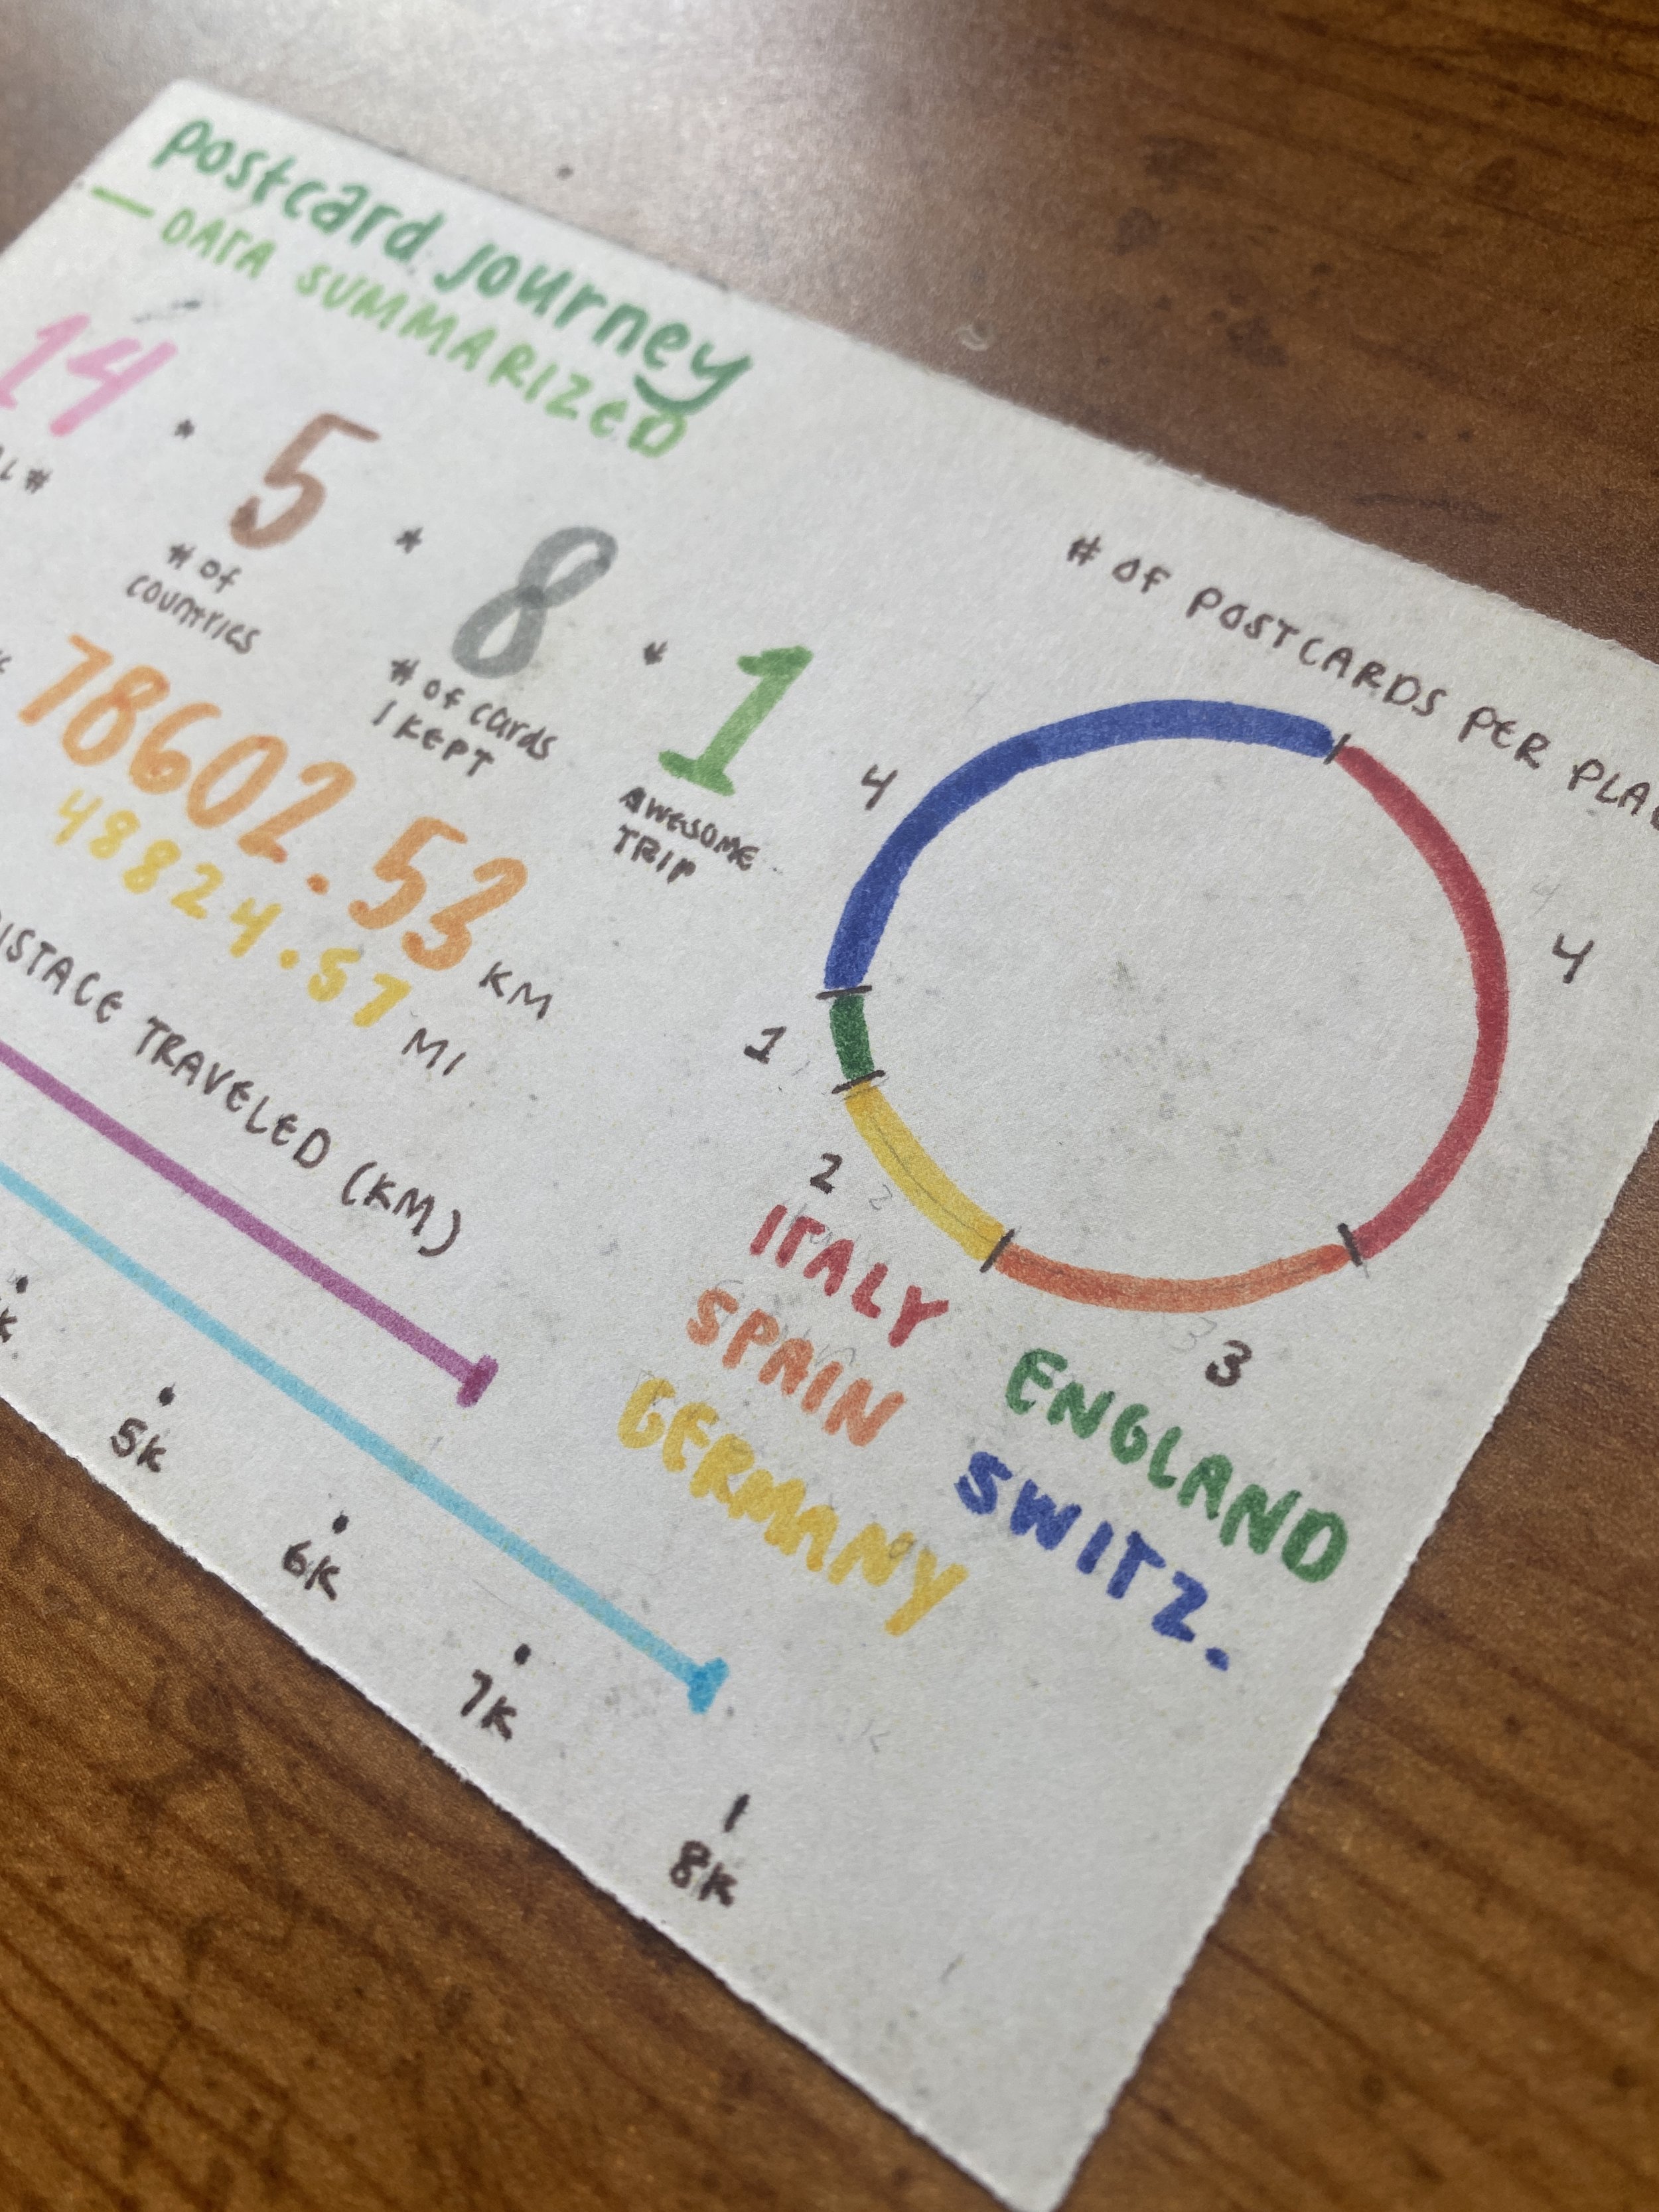 postcard journey
— DATA SUMMARIZED
14 * 5 * 8 * 1
#
# of
countries
# of cards
I KEPT
AWESOME
TRIP
78602.53 KM
48824.57 MI
TRAVELED (KM)
5K
6K
7K
8K
# OF POSTCARDS PER
4
4
1
2
3
ITALY
SPAIN
GERMANY
ENGLAND
SWITZ.